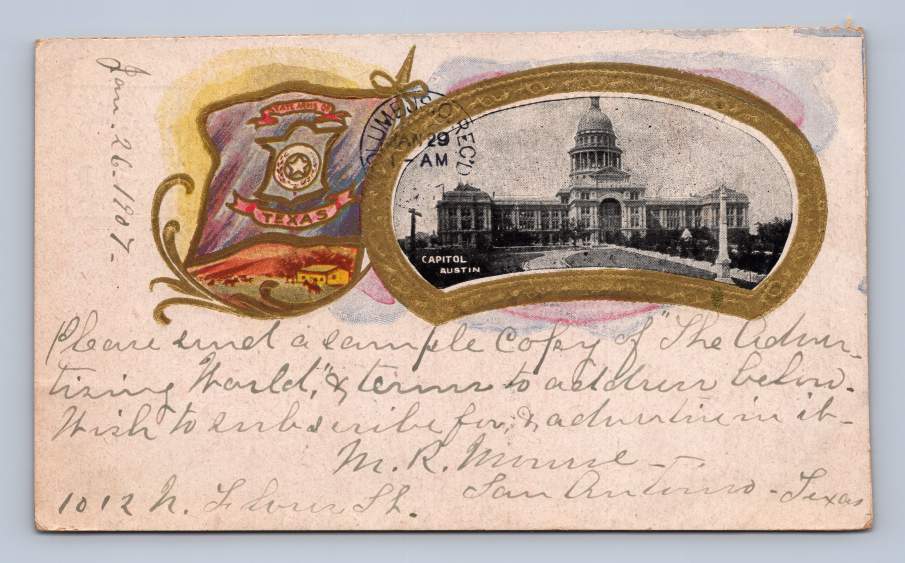 Jan. 26-1907-
STATE ARMS OF
TEXAS
COLUMBUS, O. REC'D
JAN 29
AM
CAPITOL
AUSTIN
Please send a sample copy of "The Adver-
tising World," & terms to address below.
Wish to subscribe for, & advertise in it-
M. R. Monroe-
San Antonio-Texas
1012 N. Flores St.